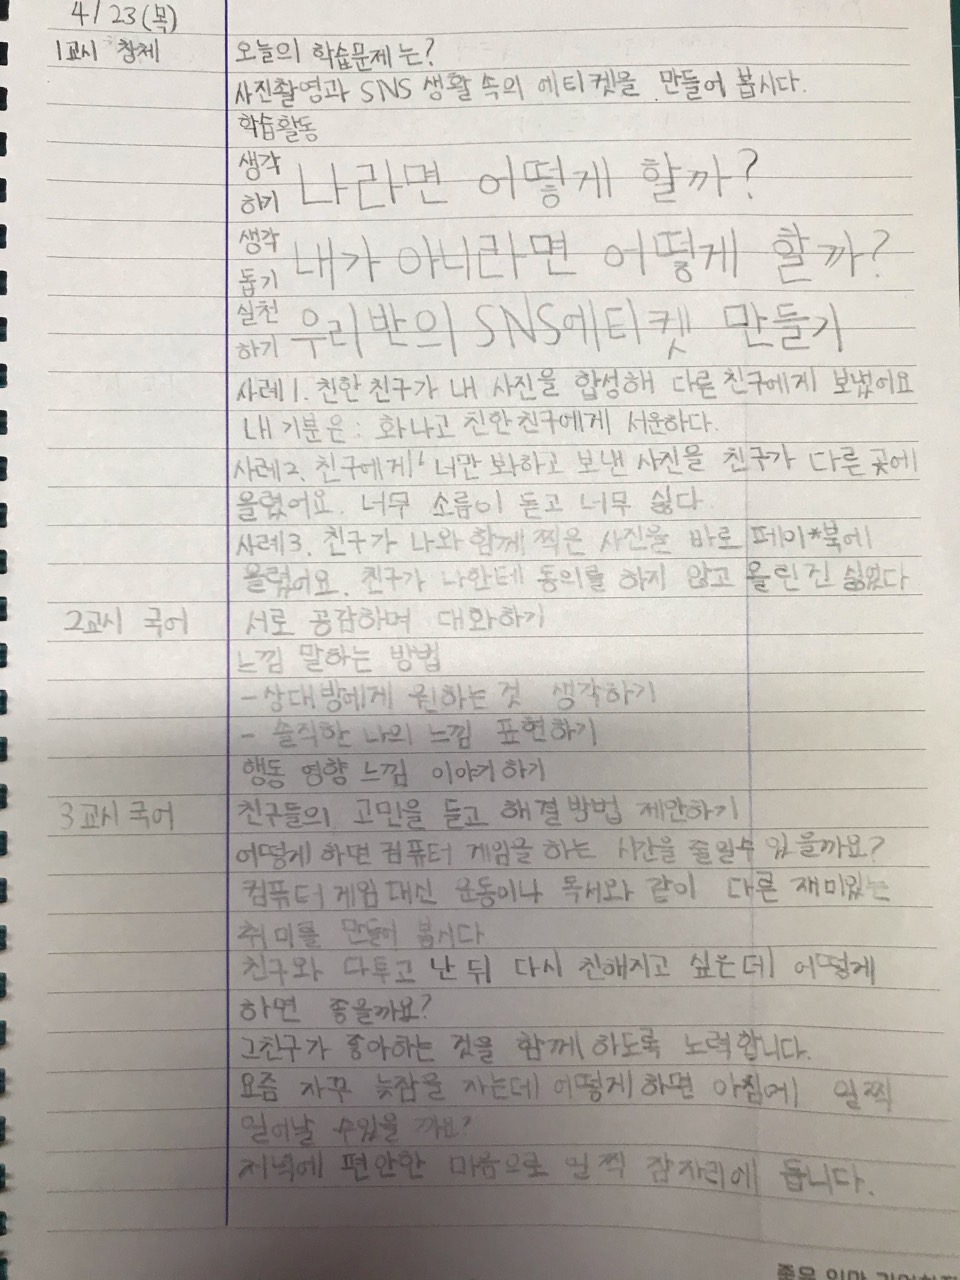 4/23(목)
1교시 창체 오늘의 학습문제는?
사진촬영과 SNS 생활 속의 에티켓을 만들어 봅시다.
학습활동
생각하기 나라면 어떻게 할까?
생각돕기 내가 아니라면 어떻게 할까?
실천하기 우리반의 SNS에티켓 만들기
사례1. 친한친구가 내 사진을 합성해 다른친구에게 보냈어요
내 기분은: 화나고 친한친구에게 서운하다.
사례2. 친구에게 '너만 봐하고 보낸 사진을 친구가 다른 곳에
올렸어요. 너무 소름이 돋고 너무 싫다.
사례3. 친구가 나와 함께 찍은 사진을 바로 페이*북에
올렸어요. 친구가 나한테 동의를 하지 않고 올린진 싫었다
2교시 국어 서로 공감하며 대화하기
느낌 말하는 방법
-상대방에게 원하는 것 생각하기
- 솔직한 나의 느낌 표현하기
행동 영향 느낌 이야기하기
3교시 국어 친구들의 고민을 듣고 해결방법 제안하기
어떻게 하면 컴퓨터 게임을 하는 시간을 줄일수 있을까요?
컴퓨터 게임 대신 운동이나 독서와 같이 다른 재미있는
취미를 만들어 봅시다
친구와 다투고 난 뒤 다시 친해지고 싶은데 어떻게
하면 좋을까요?
그친구가 좋아하는 것을 함께 하도록 노력합니다.
요즘 자꾸 늦잠을 자는데 어떻게 하면 아침에 일찍
일어날 수있을 까요?
저녁에 편안한 마음으로 일찍 잠자리에 듭니다.